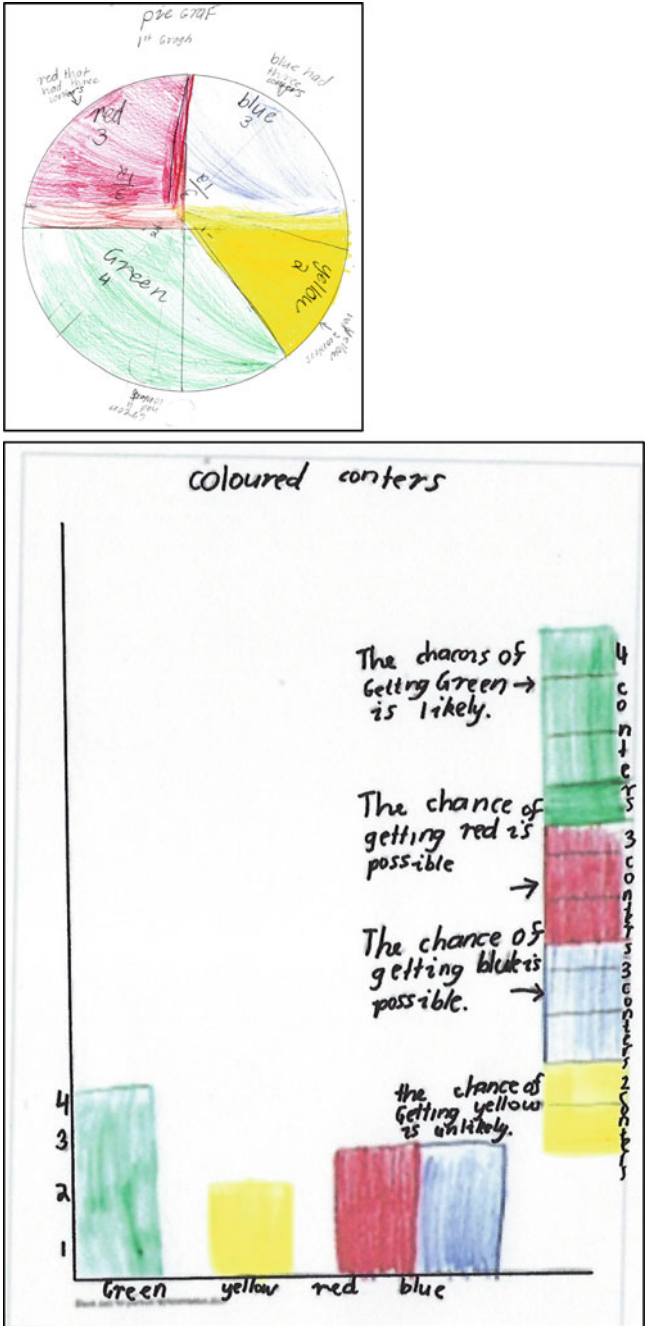 pie GraF
1st Graph
red that
had three
conters
blue had
three
conters
red
3
blue
3
Green
4
yellow
2
Green
had 4
conters
coloured conters
The chacors of
Getting Green →
is likely.
4 conters
The chance of
getting red is
possible
→
3 conters
The chance of
getting blue is
possible.
→
3 conters
the chance of
Getting yellow
is unlikely.
2 conters
4
3
2
1
Green yellow red blue